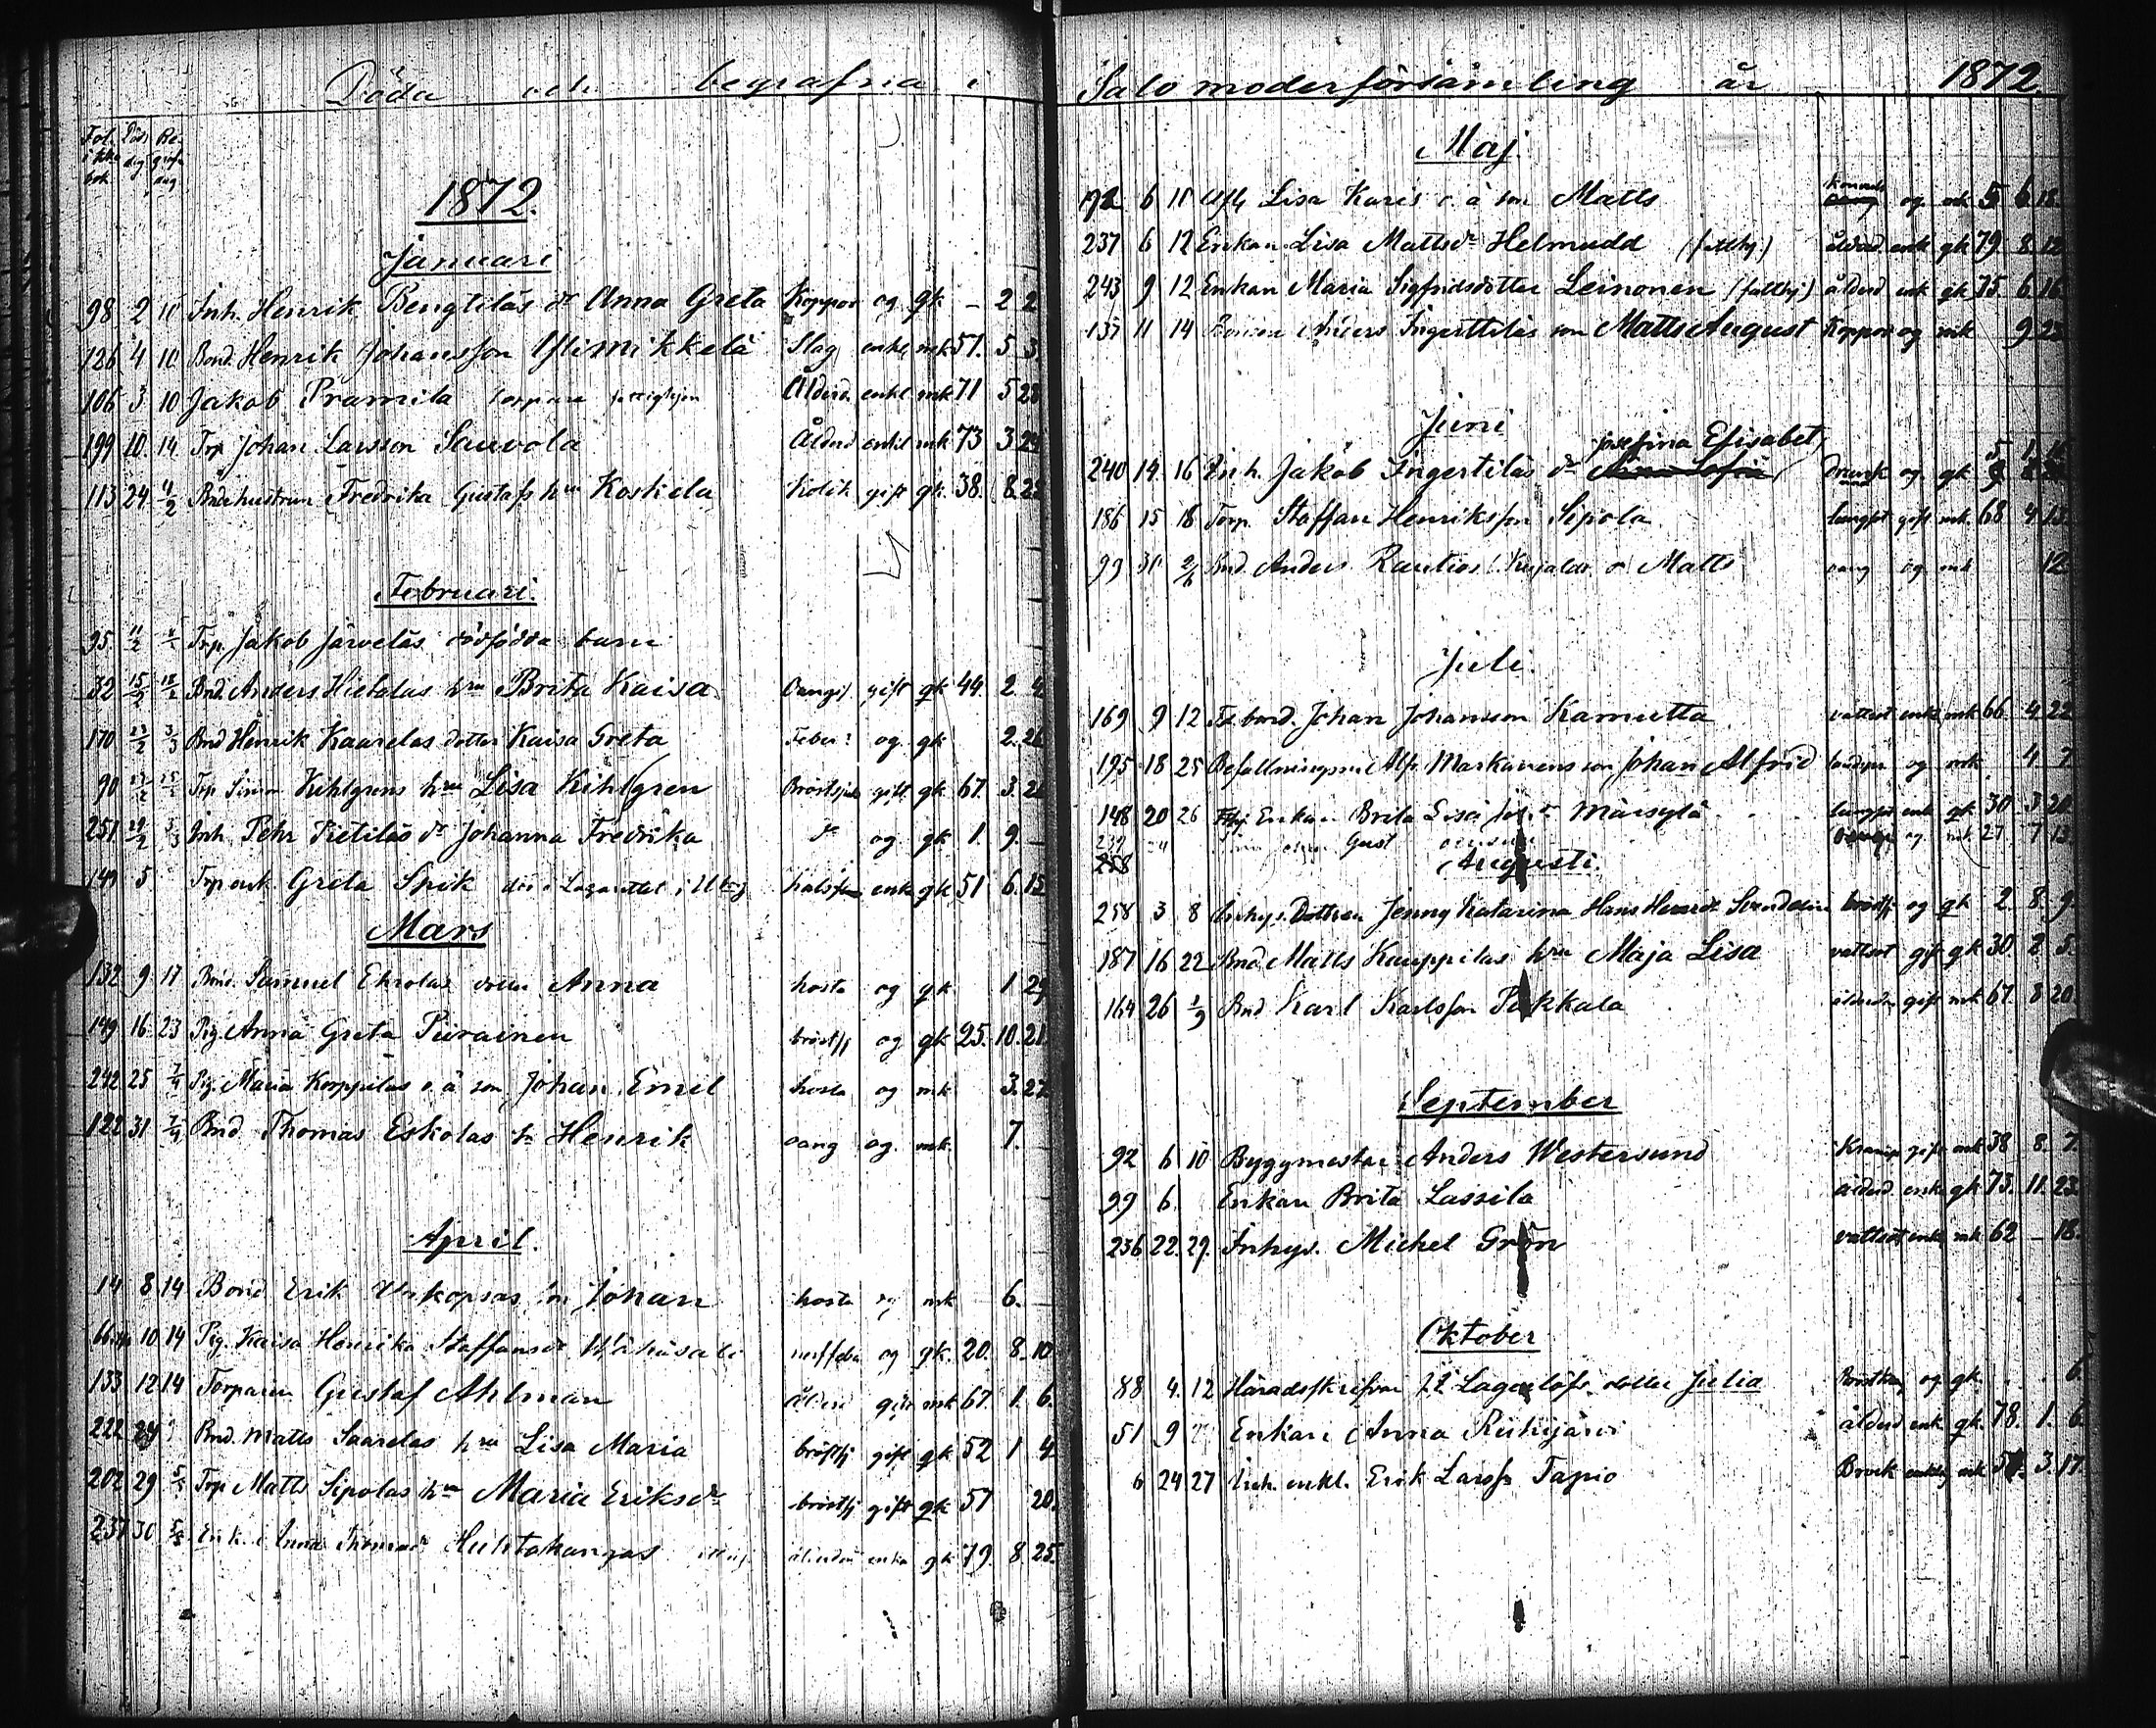 Döda och begrafna i
Fol. i kbo bok Död dag Be- graf dag
1872.
Januari
98. 2 10 Inh. Henrik Bengtiläs dr Anna Greta Koppor og gk - 2 2
126 4 10 Bond. Henrik Johansson Ylimikkelä Slag enkl mk 51. 5 3.
106 3 10 Jakob Pramila torpare fattighjon Ålderd. enkl mk 71 5 28
199 10. 14. Trp Johan Larsson Sauvola Ålderd enkl mk 73 3 24
113 24 11/2 Fredrika Gustafs hru Koskela Kolik gift gk. 38. 8. 28
Februari.
95. 11/2 Trp. Jakob Järveläs dödfödda barn
32 15/2 18/2 Bnd. Anders Hietalas hru Brita Kaisa gift gk 44. 2 4
170 3/3 Bnd Henrik Kaarelas dotter Kaisa Greta Feber? og gk 2. 26
90 Trp Simon Kihlgrens hru Lisa Kihlgren gift gk 67. 3. 21
251. 3/3 Inh. Pehr Pietiläs dr Johanna Fredrika do og gk 1. 9. -
149 5 Trp enk Greta Spik död i Lazarettet i Ubrg enka gk 51 6. 15
Mars
132 9 17 Bnd. Samuel Ehrolas dotter Anna hosta og gk 1 29
149 16 23 Pig. Anna Greta Purainen bröstfj og gk 25. 10. 21
242 25 7/4 Pig. Maria Korppilas o. ä son Johan Emil hosta og mk 3. 27
122 31 7/4 Bnd Thomas Eskolas sn Henrik oang og. mk. 7.
April.
14 8 14 Bond Erik sn Johan hosta og mk 6.
66 10 14 Pig. Kaisa Henrika Staffansdr nerffeber og gk. 20. 8. 10
133 12 14 Torparen Gustaf Ahlman gift mk 67. 1. 6.
222 24 Bnd. Matts Saarelas hru Lisa Maria bröstfj gift gk 52 1 4
202 29 5/5 Trp Matts Sipolas hru Maria Eriksdr bröstfj gift gk 57 20.
237 30 5/5 Enk. Anna Thomasdr Huhtakangas enka gk 79. 8. 25.
Salo moderförsamling år 1872
Maj
192 6 11 Lisa Karis o. ä son Matts og mk 5 6 18.
237 6 12 Enkan Lisa Mattsdr Helmudd (fatthj) ålderd. enk gk 79 8 12
243 9 12 Enkan Maria Sigfridsdotter Leinonen (fatthj) ålderd enk gk 75 6 16
137 11 14 Anders Ingerttiläs son Matts August Koppor og mk 9 23
Juni
240 14. 16 Inh. Jakob Ingertiläs dr Josefina Elisabet og gk 5 1
186 15 18 Torp. Staffan Henriksson Sipola lungsot gift mk. 68 4 13.
99 31 2/6 Bnd. Anders Rautios Matts oang og mk 12
Juli.
169 9 12 Fd bond. Johan Johansson Kamutta vattsot enkl mk 66. 4. 22
195 18 25 Befallningsm. Alf. Markanens son Johan Alfrid og mk. 4 7
148 20 26 Enkan Brita Lisa Märsylä lungsot enk gk 30. 3 20.
258 Gust og mk 27 7 13
Augusti.
258 3 8 Inhys. Dottren Jenny Katarina Hans bröstfj og gk 2. 8. 9.
187 16 22 Bnd Matts Kauppilas hru Maja Lisa vattsot gift gk 30 2 5.
164 26 1/9 Bnd Karl Karlsson Pukkala ålderdom gift mk 67. 8 20.
September
92 6 10 Byggmestar Anders Westersund Kramp gift mk 38 8. 7.
99 6. Enkan Brita Lassila ålderd enka gk 73. 11. 23.
236 22. 29. Inhys. Michel Grön vattsot enkl mk 62 - 18.
Oktober
88 4. 12 Häradsskrifvar Lagerlöfs dotter Julia og gk . . 6.
51 9 Enkan Anna Riihijärvi ålderd enk gk. 78. 1. 6.
6 24 27 Inh. enkl. Erik Larss. Tapio Brock enkling mk 3. 17